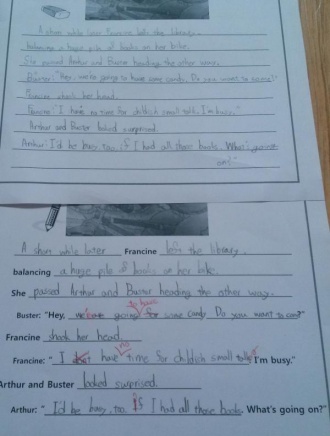 A short while later Francine left the library.
balancing a huge pile of books on her bike.
She passed Arthur and Buster heading the other way.
Buster: "Hey, we're going to have some candy. Do you want to come?"
Francine shook her head.
Francine: "I have no time for childish small talk. I'm busy."
Arthur and Buster looked surprised.
Arthur: I'd be busy, too. if I had all those books. What's going on?"
A short while later Francine left the library.
balancing a huge pile of books on her bike.
She passed Arthur and Buster heading the other way.
to have
Buster: "Hey, we're going for some candy. Do you want to come?"
Francine shook her head.
no
Francine: "I have time for childish small talk. I'm busy."
Arthur and Buster looked surprised.
Arthur: "I'd be busy, too. If I had all those books. What's going on?"